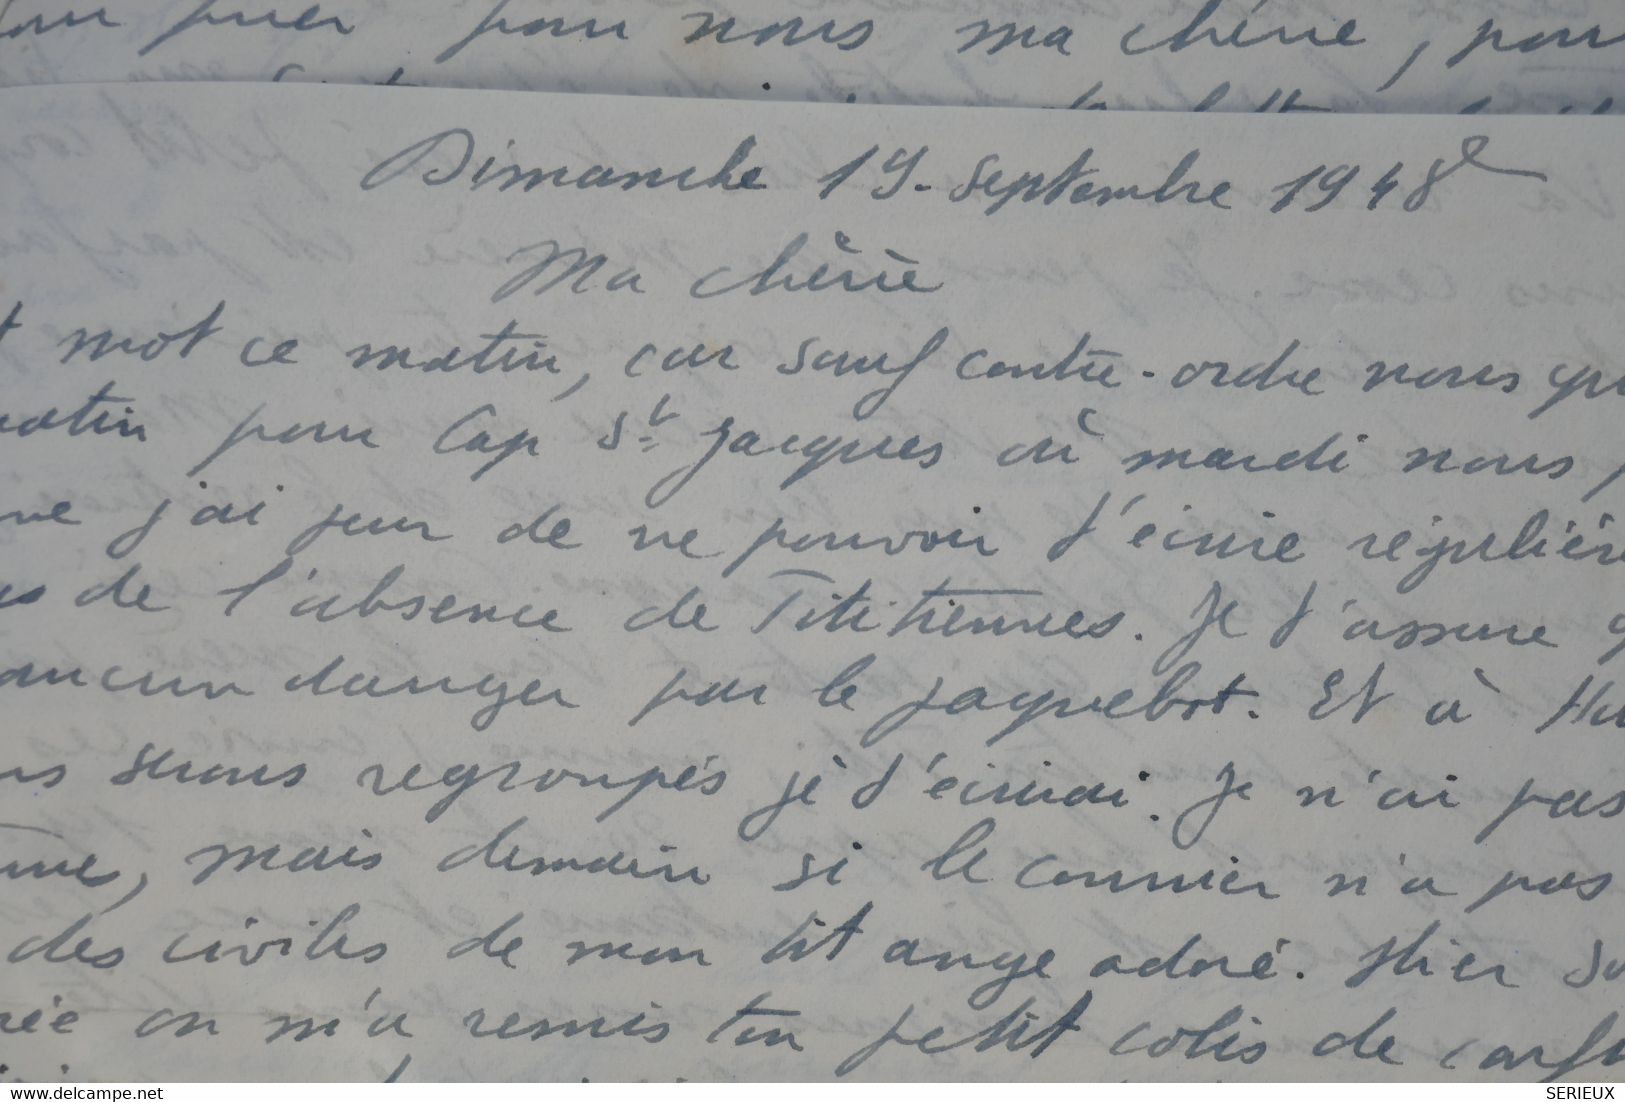 prier pour nous ma chérie, pour
Dimanche 19 - Septembre 1948
Ma chérie
mot ce matin, car sauf contre-ordre nous
matin pour Cap St Jacques où mardi nous
j'ai peur de ne pouvoir t'écrire réguliè
de l'absence de Tititiennes. Je t'assure
aucun danger par le paquebot. Et à
serons regroupés je t'écrirai. Je n'ai pas
mais demain si le courrier n'a pas
des civiles de mon tit ange adoré. Hier
on m'a remis ton petit colis de
www.delcampe.net
SERIEUX